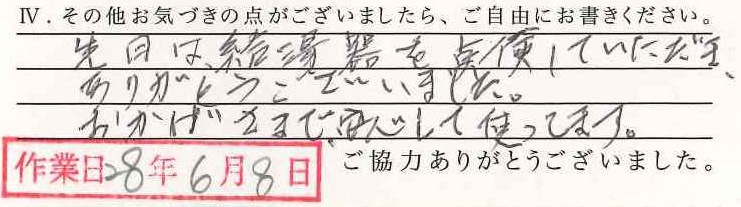 Ⅳ．その他お気づきの点がございましたら、ご自由にお書きください。
先日は、給湯器を点検していただき、
ありがとうございました。
おかげさまで、安心して使ってます。
作業日28年6月8日
ご協力ありがとうございました。